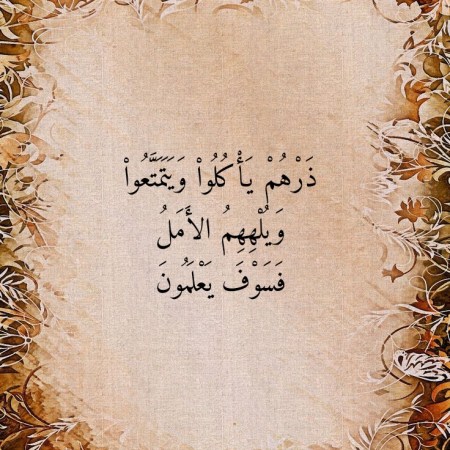 ذَرْهُمْ يَأْكُلُواْ وَيَتَمَتَّعُواْ
وَيُلْهِهِمُ الأَمَلُ
فَسَوْفَ يَعْلَمُونَ